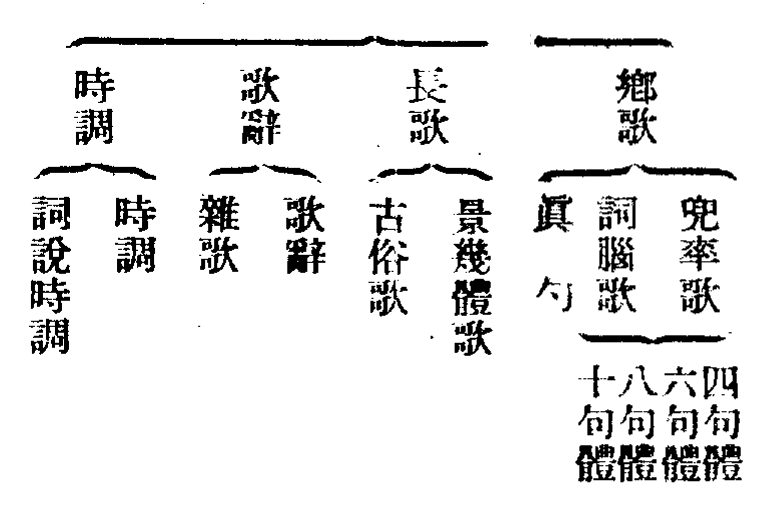 鄕歌
長歌
歌辭
時調
兜率歌
詞腦歌
眞勺
景幾體歌
古俗歌
歌辭
雜歌
時調
詞說時調
四句體
六句體
八句體
十句體